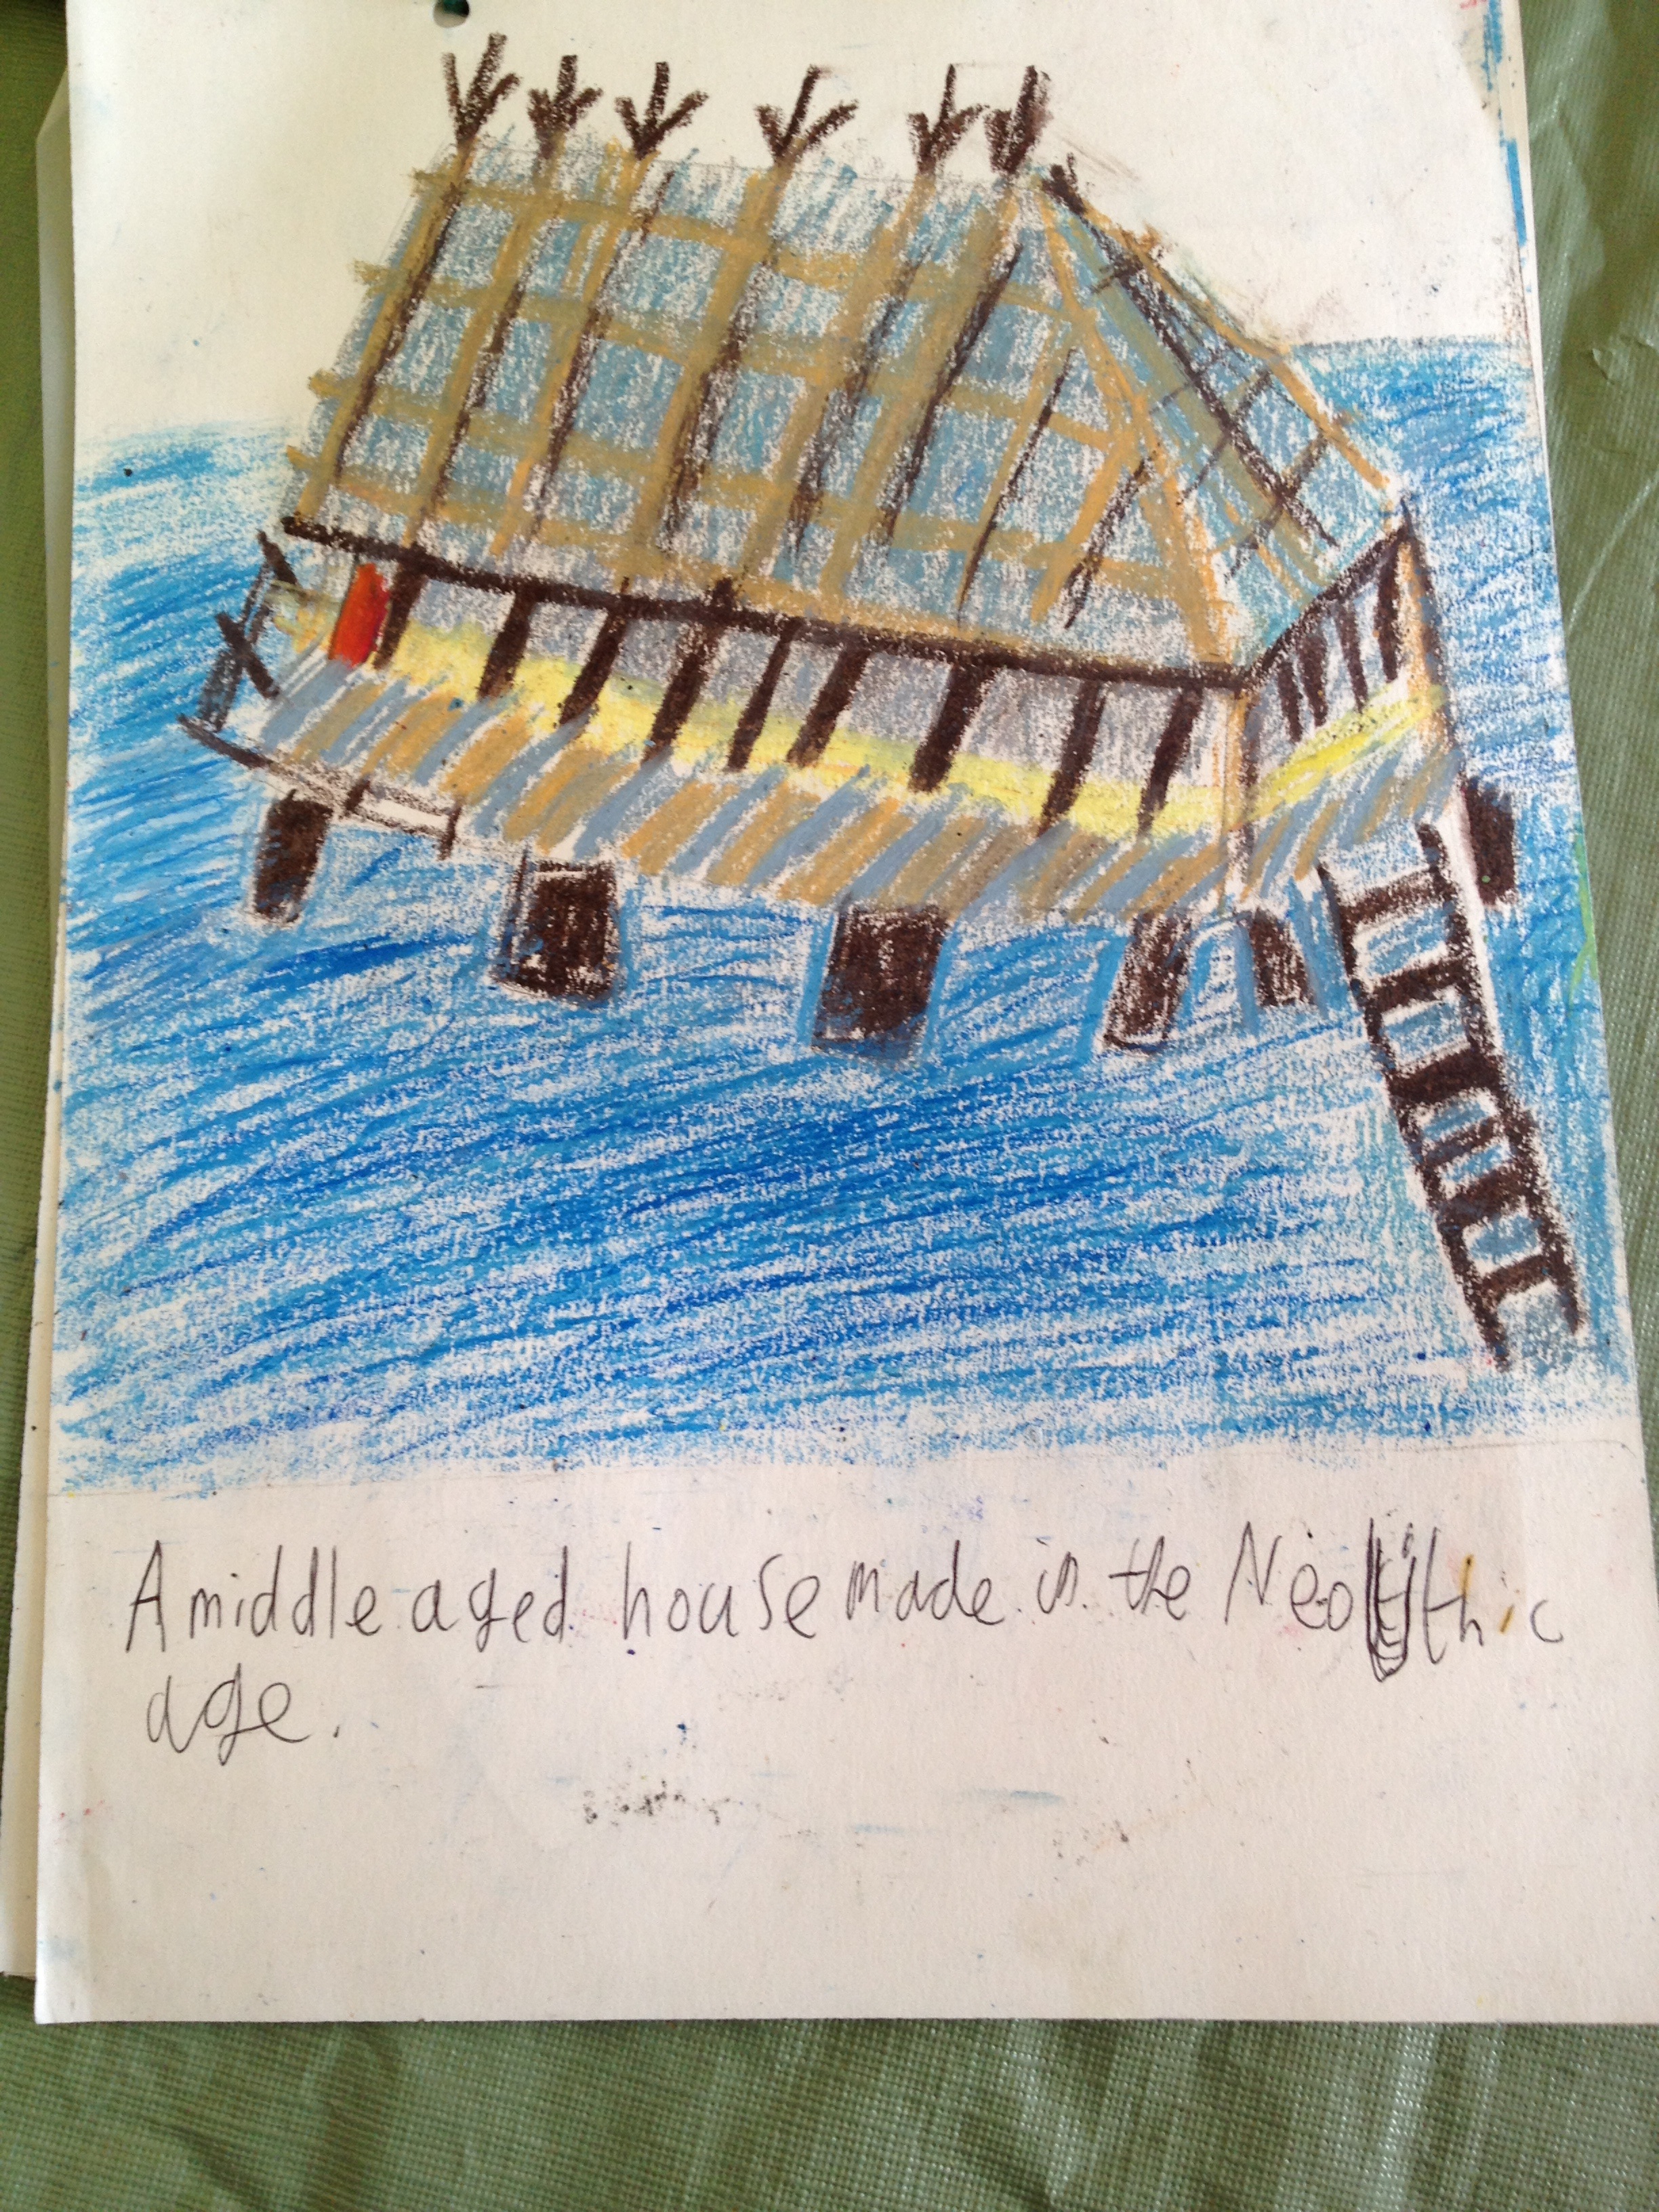 A middle aged house made in the Neolithic
age.